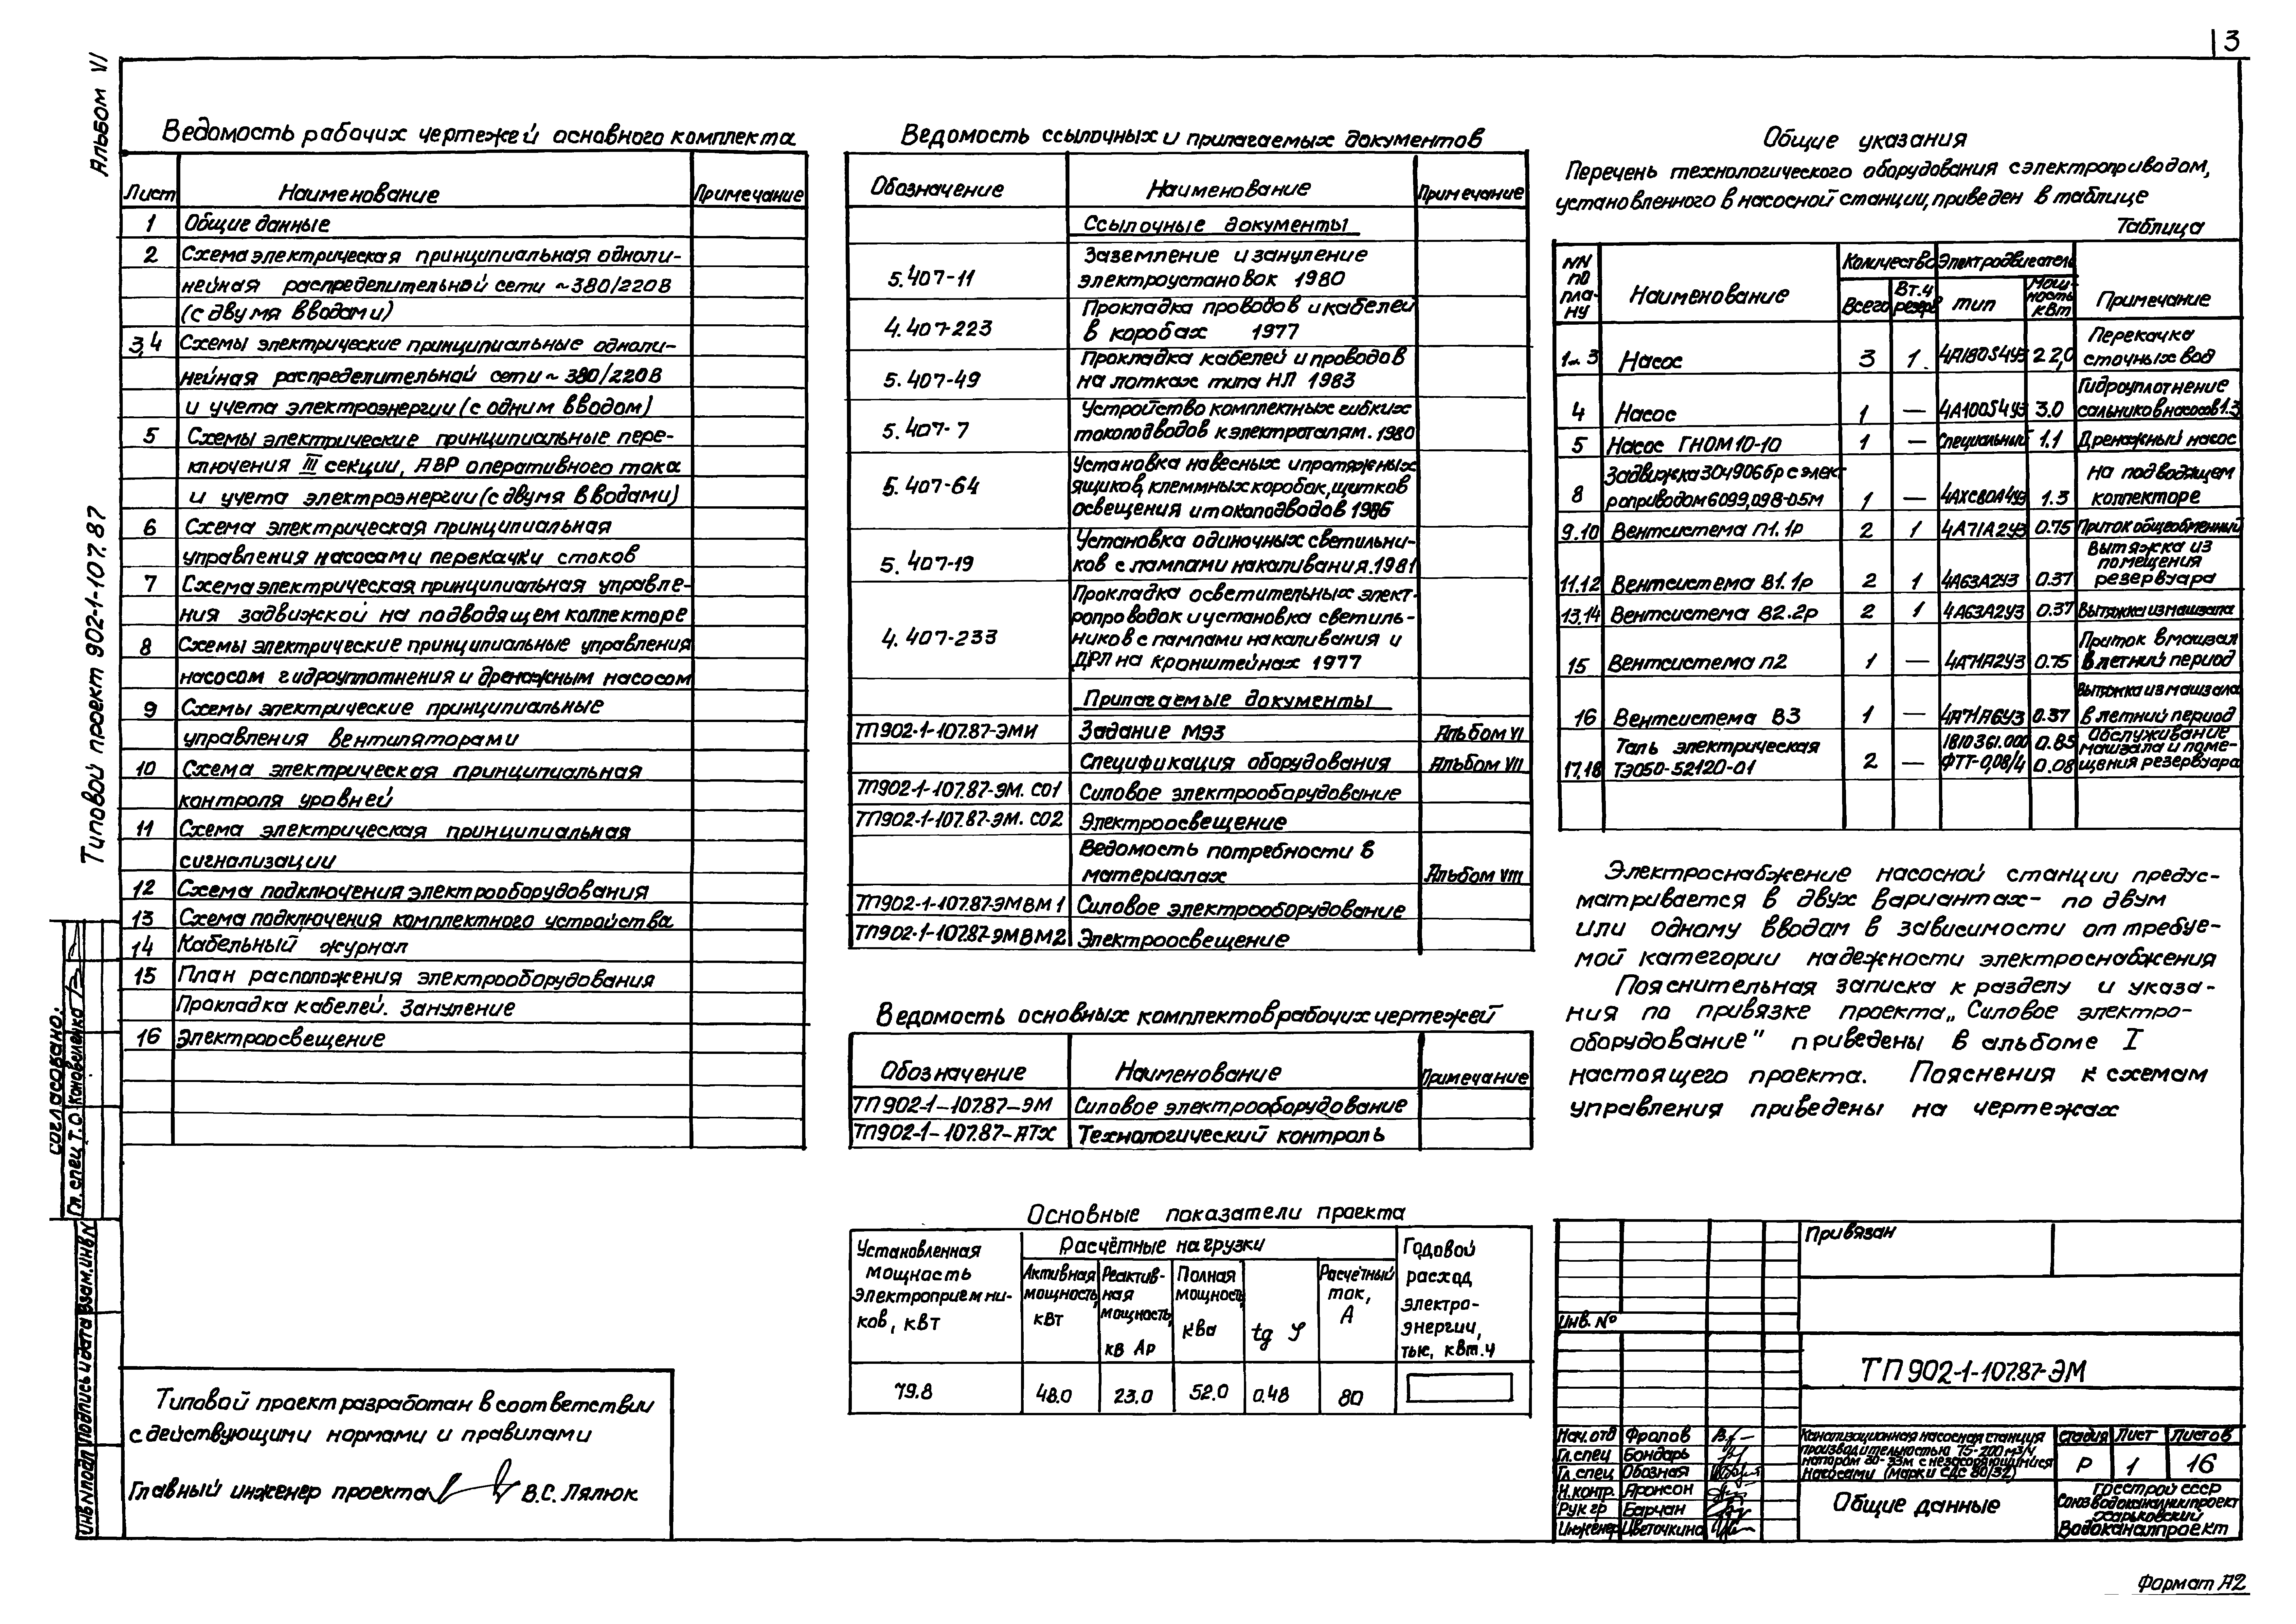 3
Альбом VI
Типовой проект 902-1-107.87
Ведомость рабочих чертежей основного комплекта
Лист Наименование Примечание
1 Общие данные
2 Схема электрическая принципиальная одноли-
нейная распределительной сети ~380/220В
(с двумя вводами)
3,4 Схемы электрические принципиальные одноли-
нейная распределительной сети ~ 380/220В
и учета электроэнергии (с одним вводом)
5 Схемы электрические принципиальные пере-
ключения III секции, АВР оперативного тока
и учета электроэнергии (с двумя вводами)
6 Схема электрическая принципиальная
управления насосами перекачки стоков
7 Схема электрическая принципиальная управле-
ния задвижкой на подводящем коллекторе
8 Схемы электрические принципиальные управления
насосом гидроуплотнения и дренажным насосом
9 Схемы электрические принципиальные
управления вентиляторами
10 Схема электрическая принципиальная
контроля уровней
11 Схема электрическая принципиальная
сигнализации
12 Схема подключения электрооборудования
13 Схема подключения комплектного устройства
14 Кабельный журнал
15 План расположения электрооборудования
Прокладка кабелей. Зануление
16 Электроосвещение
Типовой проект разработан в соответствии
с действующими нормами и правилами
Главный инженер проекта В.С. Лялюк
Согласовано:
Гл. спец Т.О. Кановеленко
Инв N подл Подпись и дата Взам. инв N
Ведомость ссылочных и прилагаемых документов
Обозначение Наименование Примечание
Ссылочные документы
5.407-11 Заземление и зануление
электроустановок 1980
4.407-223 Прокладка проводов и кабелей
в коробах 1977
5.407-49 Прокладка кабелей и проводов
на лотках типа НЛ 1983
5.407-7 Устройство комплектных гибких
токоподводов к электроталям. 1980
5.407-64 Установка навесных и протяжных
ящиков, клеммных коробок, щитков
освещения и токоподводов 1986
5.407-19 Установка одиночных светильни-
ков с лампами накаливания. 1981
4.407-233 Прокладка осветительных элект-
ропроводок и установка светиль-
ников с лампами накаливания и
ДРЛ на кронштейнах 1977
Прилагаемые документы
ТП902-1-107.87-ЭМИ Задание МЭЗ Альбом VI
Спецификация оборудования Альбом VII
ТП902-1-107.87-ЭМ. СО1 Силовое электрооборудование
ТП902-1-107.87-ЭМ. СО2 Электроосвещение
Ведомость потребности в
материалах Альбом VIII
ТП902-1-107.87-ЭМВМ1 Силовое электрооборудование
ТП902-1-107.87-ЭМВМ2 Электроосвещение
Ведомость основных комплектов рабочих чертежей
Обозначение Наименование Примечание
ТП902-1-107.87-ЭМ Силовое электрооборудование
ТП902-1-107.87-АТХ Технологический контроль
Основные показатели проекта
Установленная мощность электроприемни-ков, кВт
Расчётные нагрузки
Активная мощность, кВт
Реактив-ная мощность, кВАр
Полная мощность, кВа
tg φ
Расчётный ток, А
Годовой расход электро-энергии, тыс, кВт.ч
79.8 48.0 23.0 52.0 0.48 80
Общие указания
Перечень технологического оборудования с электроприводом,
установленного в насосной станции, приведен в таблице
Таблица
NN по пла-ну Наименование Количество Электродвигатель Примечание
Всего Вт.ч резерв Тип Мощ-ность кВт
1...3 Насос 3 1 4А180S4У3 22,0 Перекачка сточных вод
4 Насос 1 — 4А100S4У3 3.0 Гидроуплотнение сальников насосов 1.3
5 Насос ГНОМ 10-10 1 — Специальный 1.1 Дренажный насос
8 Задвижка 30ч906бр с элект-роприводом 6099,098-05м 1 — 4АХС80А4У3 1.3 На подводящем коллекторе
9.10 Вентсистема П1.1р 2 1 4А71А2У3 0.75 Приток общеобменный
11.12 Вентсистема В1.1р 2 1 4А63А2У3 0.37 Вытяжка из помещения резервуара
13.14 Вентсистема В2.2р 2 1 4А63А2У3 0.37 Вытяжка из машзала
15 Вентсистема П2 1 — 4А71А2У3 0.75 Приток в машзал в летний период
16 Вентсистема В3 1 — 4А71А6У3 0.37 Вытяжка из машзала в летний период
17,18 Таль электрическая ТЭ050-52120-01 2 — 1810361.000 0.85 ФТТ-0,08/4 0.08 Обслуживание машзала и поме-щения резервуара
Электроснабжение насосной станции предус-
матривается в двух вариантах- по двум
или одному вводам в зависимости от требуе-
мой категории надежности электроснабжения
Пояснительная записка к разделу и указа-
ния по привязке проекта „Силовое электро-
оборудование" приведены в альбоме I
настоящего проекта. Пояснения к схемам
управления приведены на чертежах
Привязан
Инв. №
ТП 902-1-107.87-ЭМ
Нач. отд Фролов
Гл. спец Бондарь
Гл. спец Обозная
Н. контр. Аронсон
Рук гр Барчан
Инженер Цветочкина
Канализационная насосная станция
производительностью 75-200 м3/ч
напором 30-33м с незасоряющимися
насосами (марки СДС 80/32)
Стадия Лист Листов
Р 1 16
Общие данные
Госстрой СССР
Союзводоканалниипроект
Харьковский
Водоканалпроект
Формат А2